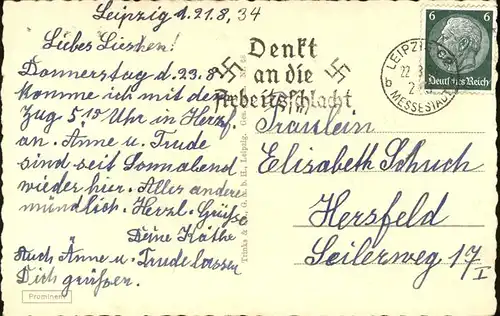 Leipzig d. 21.8.34
Liebes Lieschen!
Donnerstag d. 23.8
komme ich mit dem
Zug 5 10 Uhr in Hersf.
an. Anne u. Trude
sind seit Sonnabend
wieder hier. Alles andere
mündlich. Herzl. Grüße
Deine Käthe
Auch Änne u. Trude lassen
Dich grüßen.
Prominent
Trinks & G. m. b. H., Leipzig.
Denkt
an die
Arbeitsschlacht
LEIPZIG
22. 8
MESSESTADT
b
6 6
Deutsches Reich
Fräulein
Elisabeth Schuch
Hersfeld
Seilerweg 17 I